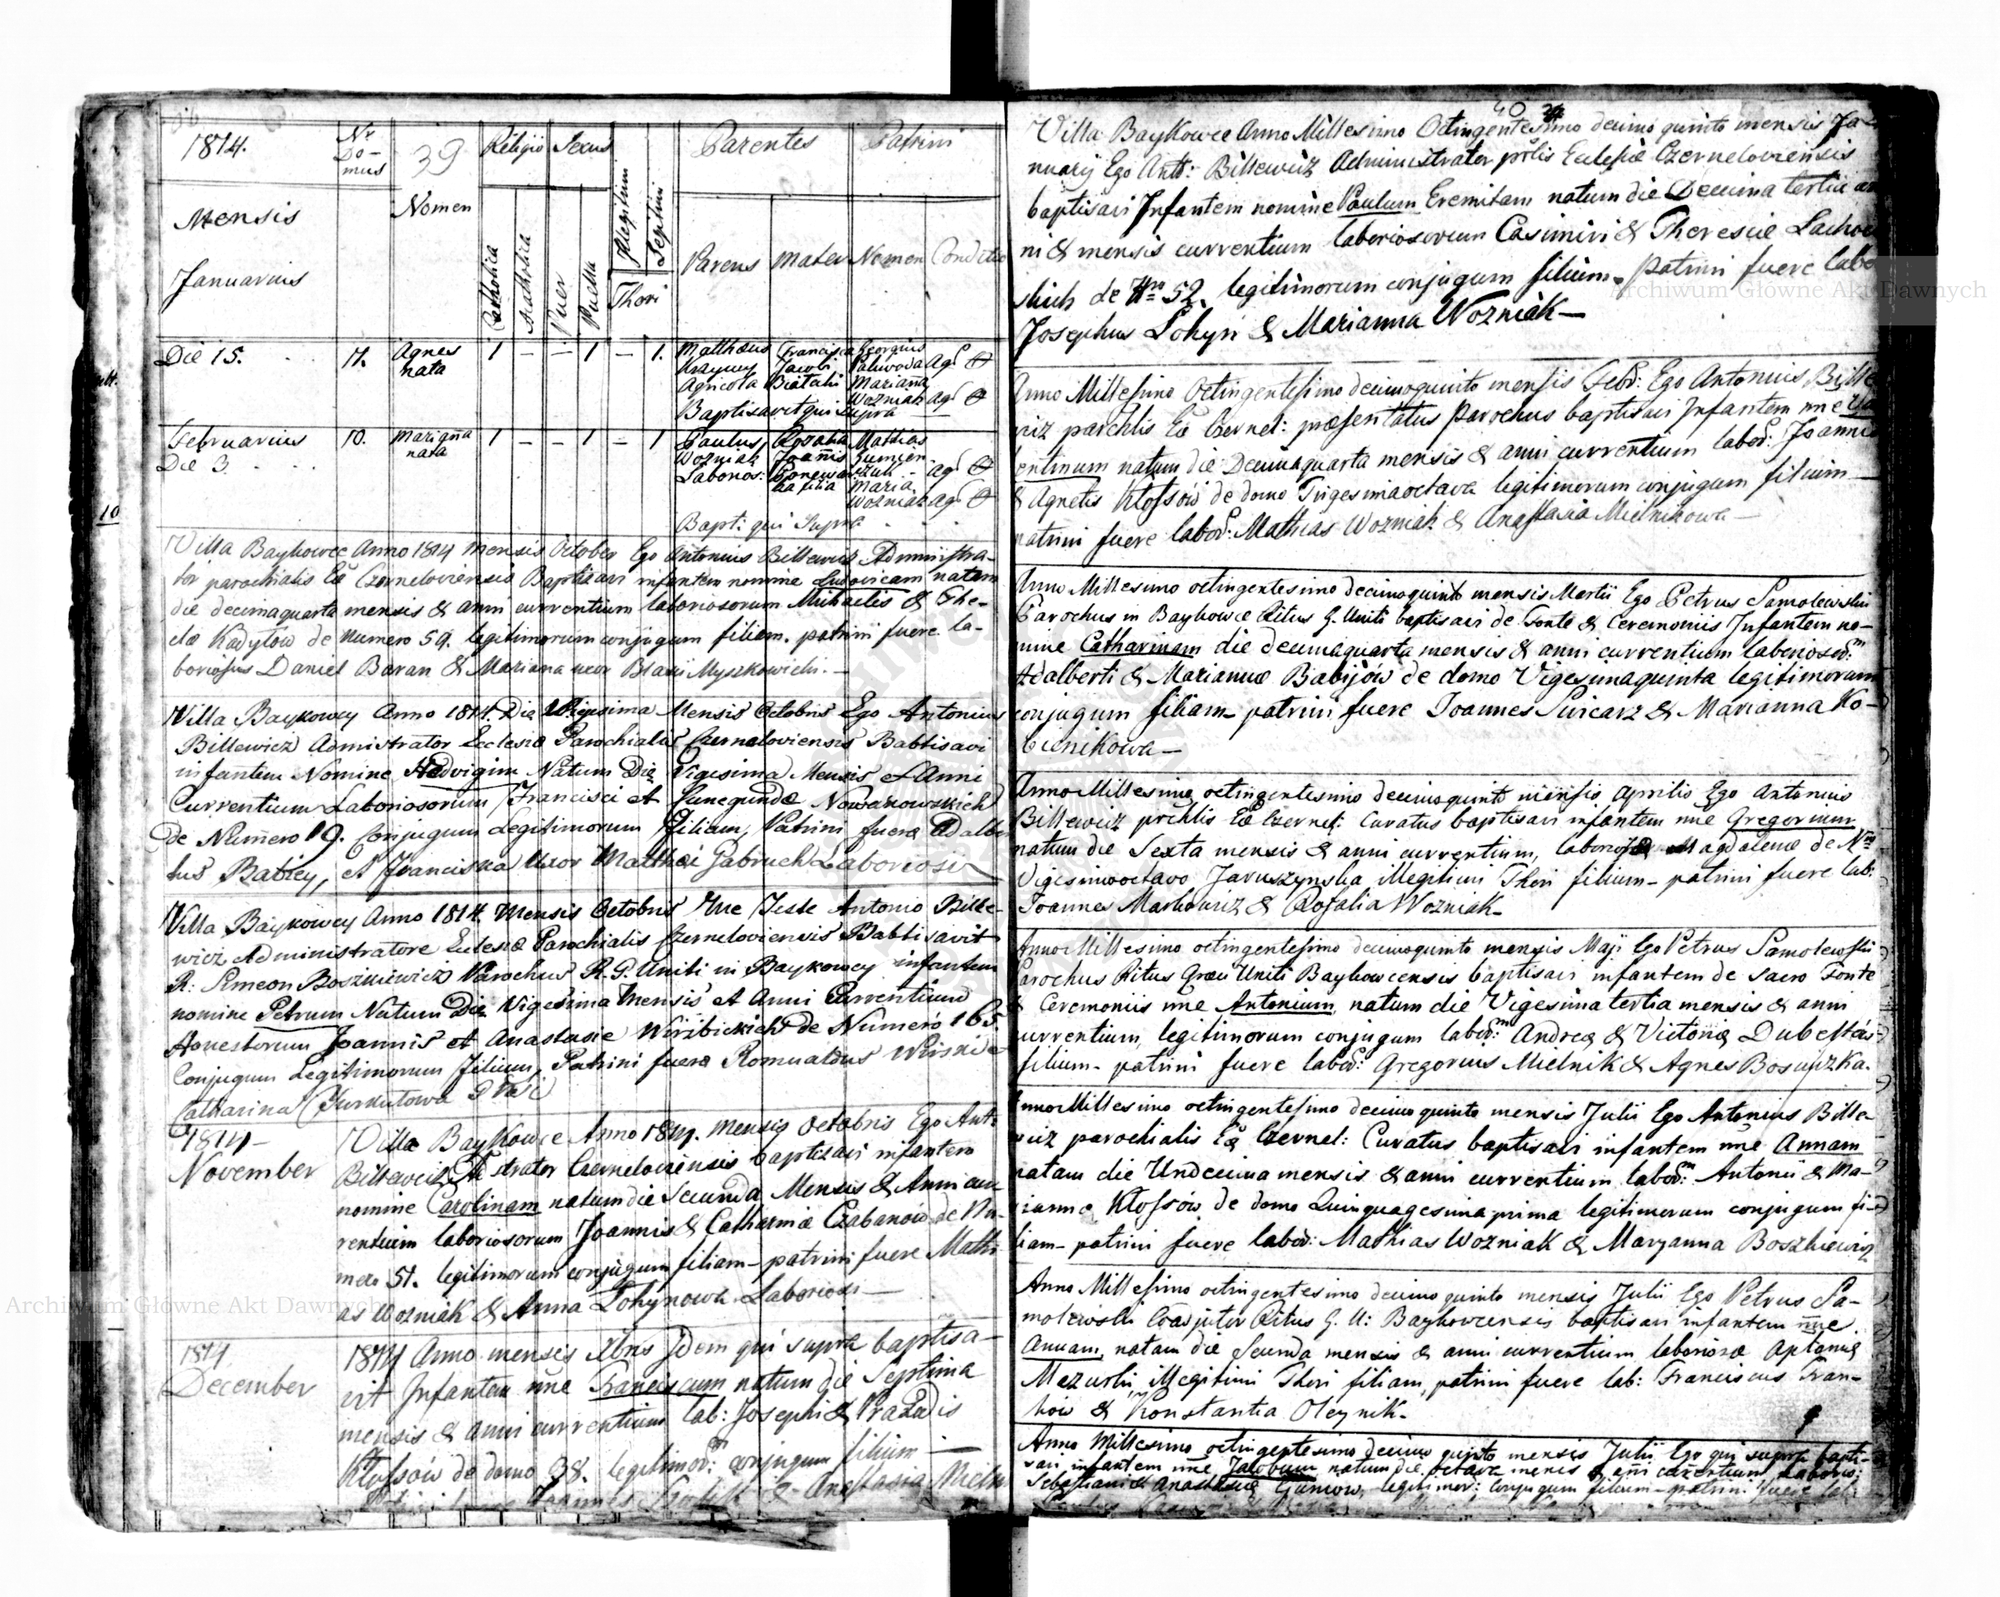 1814.
Nr Do-mus
39
Religio
Sexus
Parentes
Patrini
Mensis
Januarius
Nomen
Catholica
Acatholica
Puer
Puella
Illegitimi
Legitimi
Thori
Parens
Mater
Nomen
Conditio
Die 15.
17.
Agnes nata
1 – – 1 – 1.
Matthaeus
Agricola
Francisca Jacobi
Georgius
Marianna Wozniak
Agr
Agr
Baptisavit qui supra
Februarius
Die 3
10.
Marianna nata
1 – – 1 – 1
Paulus Wozniak Laborios:
Rosalia Joannis
filia
Mathias
Maria Wozniak
agr
agr
Bapt: qui Supra
10
Villa Baykowce Anno 1814 mensis October Ego Antonius Billewicz Administra-
tor parochialis Eccl Czerneloviensis Baptisavi infantem nomine Ludovicam natam
die decimaquarta mensis & anni currentium laboriosorum Michaelis & The-
clae Kadylow de numero 59. legitimorum conjugum filiam. patrini fuere la-
boriosus Daniel Baran & Mariana uxor Blasii Myszkowich.–
Villa Baykowcy Anno 1814. Die Vigesima Mensis Octobris Ego Antonius
Billewicz Admistrator Eclesiæ Parochialis Czerneloviensis Babtisavi
infantem Nomine Hedvigim Natum Die Vigesima Mensis et Anni
Currentium Laboriosorum Francisci et Cunegundæ Nowakowskich
de Numero 19. Conjugum Legitimorum filiam, Patrini fuere Adalber
tus Babiey, et Franciska Uxor Matthæi Gabruch Laboriosi
Villa Baykowcy Anno 1814 Mensis Octobris Me Teste Antonio Bille-
wicz Administratore Eclesiæ Parochialis Czerneloviensis Babtisavit
R: Simeon Boszkiewicz Parochus R. G. Uniti in Baykowcy infantem
nomine Petrum Natum Die Vigesima Mensis et Anni Currentium
Honestorum Joannis et Anastasie Wirzbickich de Numero 165
Conjugum Legitimorum filium, Patrini fuere Romualdus Wirski et
Catharina
1814–
November
Villa Baykowce Anno 1814. mensis Octobris Ego Ant:
Billewicz Administrator Czerneloviensis baptizavi infantem
nomine Carolinam natum die Secunda Mensis & Anni cur-
rentium laboriosorum Joannis & Catharinæ Czabanów de Nu-
mero 51. legitimorum conjugum filiam– patrini fuere Mathi-
as Wozniak & Anna Lohynowa Laboriosi–
1814
December
1814 Anno mensis Xbris Idem qui supra baptisa-
vit Infantem nne Franciscum natum die Septima
mensis & anni currentium lab: Josephi & Praxedis
Klossów de domo 38. legitimor: conjugum filium–
Anastasia Mieln
40
Villa Baykowce Anno Millesimo Octingentesimo decimo quinto mensis Ja-
nuarij Ego Ant: Billewicz Administrator pchlis Eclesiæ Czerneloviensis
baptisavi Infantem nomine Paulum Eremitam natum die Decima tertia an
ni & mensis currentium laboriosorum Casimiri & Theresiæ Lacho
skich de Nro 52. legitimorum conjugum filium– Patrini fuere labo
Josephus Lohyn & Marianna Wozniak–
Anno Millesimo Octingentesimo decimoquinto mensis Feb: Ego Antonius Bille-
wicz parchlis Eæ Czernel: præsentatus Parochus baptisavi Infantem nne Va-
lentinum natum die Decimaquarta mensis & anni currentium labor: Joannis
& Agnetis Klossów de domo Trigesimaoctava legitimorum conjugum filium–
patrini fuere labor: Mathias Wozniak & Anastasia Mielnikowa–
Anno Millesimo octingentesimo decimoquinto mensis Martii Ego Petrus Samolewski
Parochus in Baykowce Ritus G. Uniti baptisavi de Fonte & Ceremoniis Infantem no-
mine Catharinam die decimaquarta mensis & anni currentium laboriosor:
Adalberti & Mariannæ Babijów de domo Vigesimaquinta legitimorum
conjugum filiam– patrini fuere Joannes Pisearz & Marianna Ko-
bielnikowa–
Anno Millesimo octingentesimo decimoquinto mensis Aprilis Ego Antonius
Billewicz prchlis Eæ Czernel: Curatus baptisavi infantem nne Gregorium
natum die Sexta mensis & anni currentium, laboriosæ Magdalenæ de Nro
Vigesimooctavo Jaruszynska Illegitimi Thori filium– patrini fuere lab:
Joannes Markowicz & Rosalia Wozniak–
Anno Millesimo octingentesimo decimoquinto mensis Maji Ego Petrus Samolewski
Parochus Ritus Græci Uniti Baykowcensis baptisavi infantem de Sacro Fonte
& Ceremoniis nne Antonium natum die Vigesima tertia mensis & anni
currentium, legitimorum conjugum labor: Andreæ & Victoriæ Dubelków
filium– patrini fuere labor: Gregorius Mielnik & Agnes Bosaczka.
Anno Millesimo octingentesimo decimo quinto mensis Julii Ego Antonius Bille-
wicz parochialis Eæ Czernel: Curatus baptisavi infantem nne Annam
natam die Undecima mensis & anni currentium labor: Antonii & Ma-
riannæ Klossów de domo Quinquagesima prima legitimorum conjugum fi-
liam– patrini fuere labor: Mathias Wozniak & Maryanna Boszkiewicz
Anno Millesimo octingentesimo decimo quinto mensis Julii Ego Petrus Sa-
molewski Coadjutor Ritus G. U: Baykowcensis baptisavi infantem nne
Annam, natam die Secunda mensis & anni currentium laboriosæ Aptoniæ
Mazurki, Illegitimi Thori filiam, patrini fuere lab: Franciscus Fran-
kow & Konstantia Oleynik–
Anno Millesimo octingentesimo decimo quinto mensis Julii Ego qui supra bapti-
savi infantem nne Jacobum natum die octava mensis & ani currentium Laborio:
Sebastiani & Anastasiæ Guniow, legitimor: conjugum filium– patrini fuere lab:
Archiwum Główne Akt Dawnych
Archiwum Główne Akt Dawnych